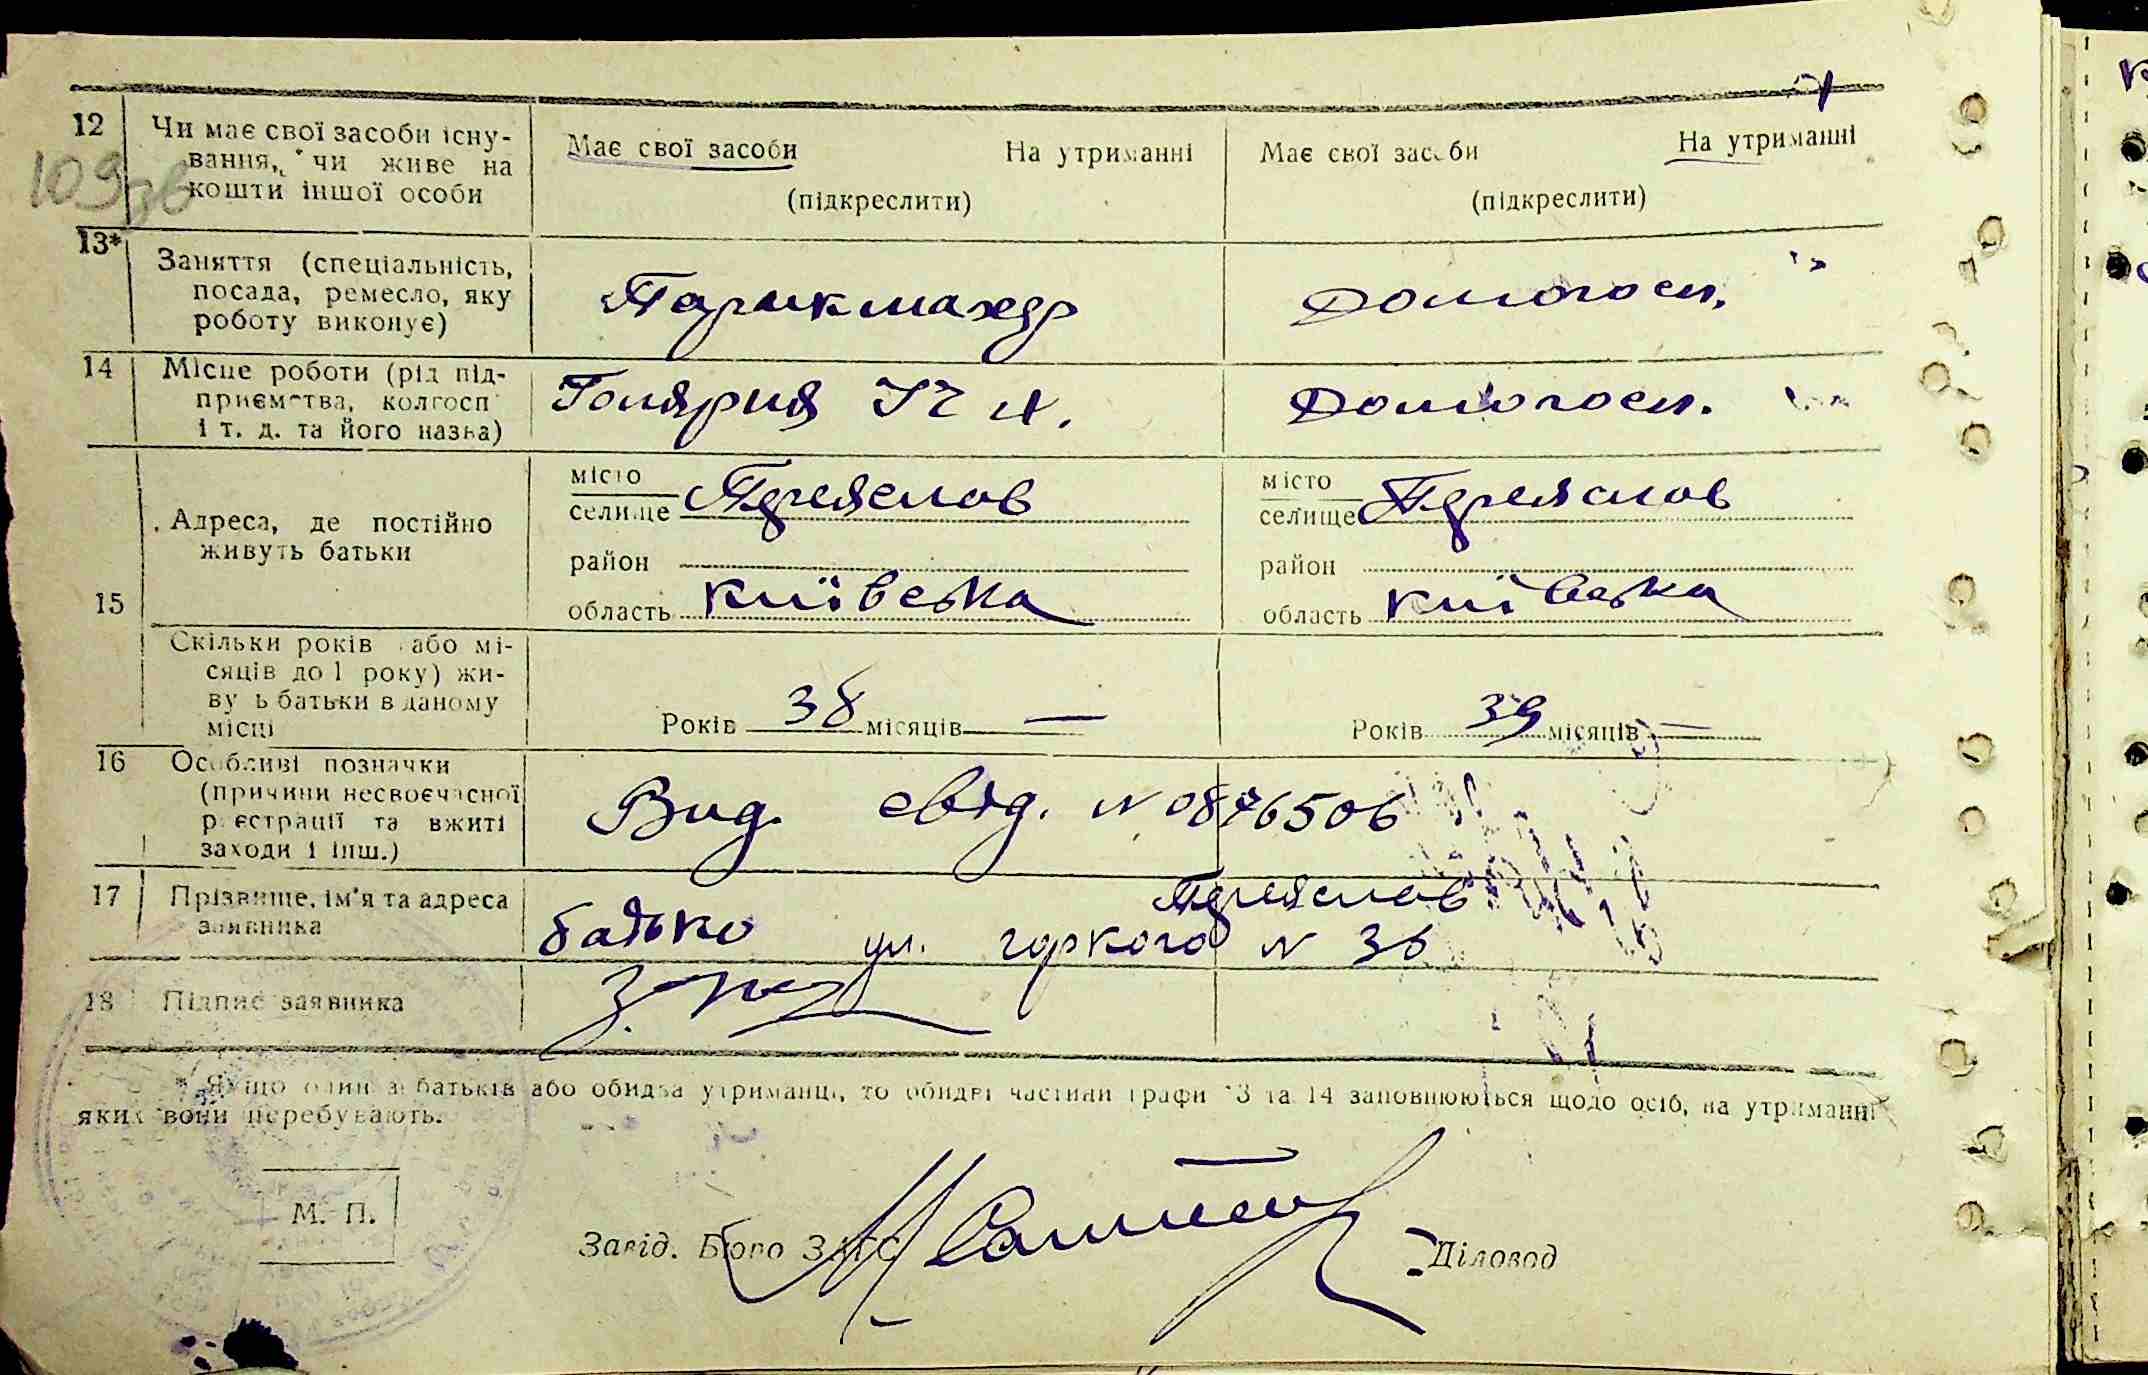 12 Чи має свої засоби існу-
вання, чи живе на
кошти іншої особи
109зв
Має свої засоби На утриманні
(підкреслити)
Має свої засоби На утриманні
(підкреслити)
13* Заняття (спеціальність,
посада, ремесло, яку
роботу виконує)
Парикмахер
Домогосп.
14 Місце роботи (рід під-
приємства, колгосп
і т. д. та його назва)
Домогосп.
15 Адреса, де постійно
живуть батьки
місто
селище Переяслов
район
область Київська
місто
селище Переяслов
район
область Київська
Скільки років або мі-
сяців до 1 року) жи-
ву ь батьки в даному
місці
Років 38 місяців —
Років 39 місяців —
16 Особливі позначки
(причини несвоєчасної
реєстрації та вжиті
заходи і інш.)
Вид. свід. N 0876506
17 Прізвище, ім'я та адреса
заявника
Переяслов
батько ул. горкого N 36
18 Підпис заявника
* Якщо один з батьків або обидва утриманці, то обидві частини графи 13 та 14 заповнюються щодо осіб, на утриманні
яких вони перебувають.
М. П.
Завід. Бюро ЗАГС
Діловод